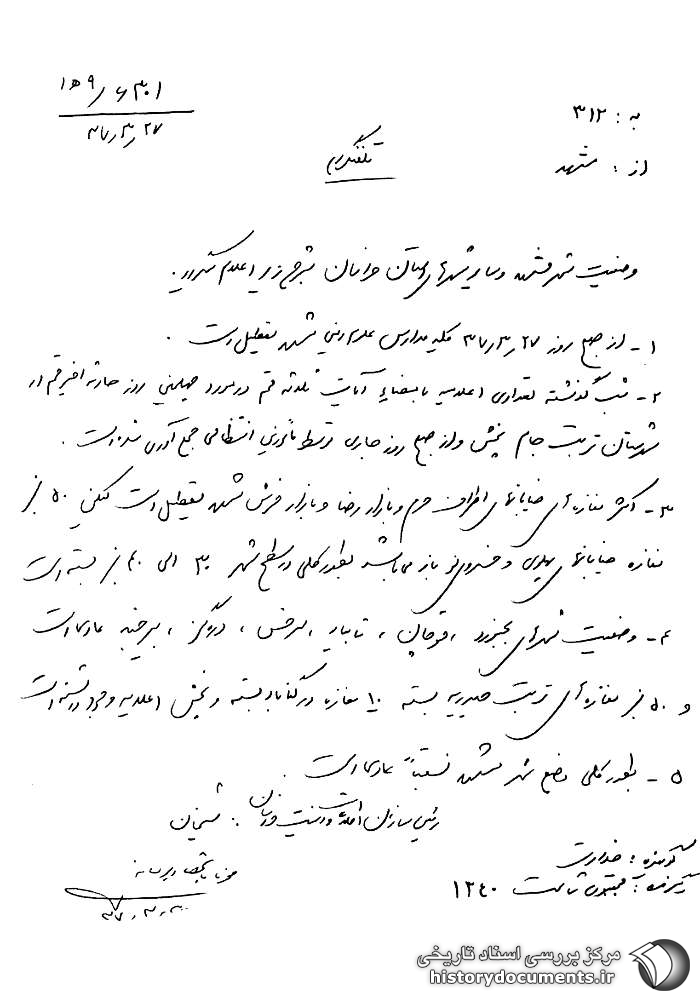 به : ۳۱۲
۳۰۱ ر۶ / ه‍ ۱۹
۲۷ر۳ر۳۷
از : مشهد
تلفنگرام
وضعیت شهر مشهد و سایر شهرهای استان خراسان بشرح زیر اعلام میگردد .
۱- از صبح روز ۲۷ر۳ر۳۷ کلیه مدارس علوم دینی مشهد تعطیل است .
۲- شب گذشته تعدادی اعلامیه بامضاء آیات ثلاثه قم در مورد چهلمین روز حادثه اخیر قم در
شهرستان تربت جام پخش و از صبح روز جاری توسط مامورین انتظامی جمع آوری شده است .
۳- اکثر مغازه های خیابانهای اطراف حرم و بازار رضا و بازار فرش مشهد تعطیل است لکن ۵۰٪
مغازه خیابانهای پهلوی و خسروی نو باز می باشد بطور کلی در سطح شهر ۳۰ الی ۴۰٪ بسته است
۴- وضعیت شهرهای بجنورد ، قوچان ، تایباد ، سرخس ، درگز ، بیرجند عادی است
و ۵۰٪ مغازه های تربت حیدریه بسته ۱۰٪ مغازه در گناباد بسته و پخش اعلامیه وجود نداشته است
۵- بطور کلی وضع شهر مشهد نسبتاً عادی است .
رئیس سازمان اطلاعات و امنیت خراسان : شیخان
گوینده :
گیرنده : ساعت ۱۲۴۰
مرکز بررسی اسناد تاریخی
historydocuments.ir